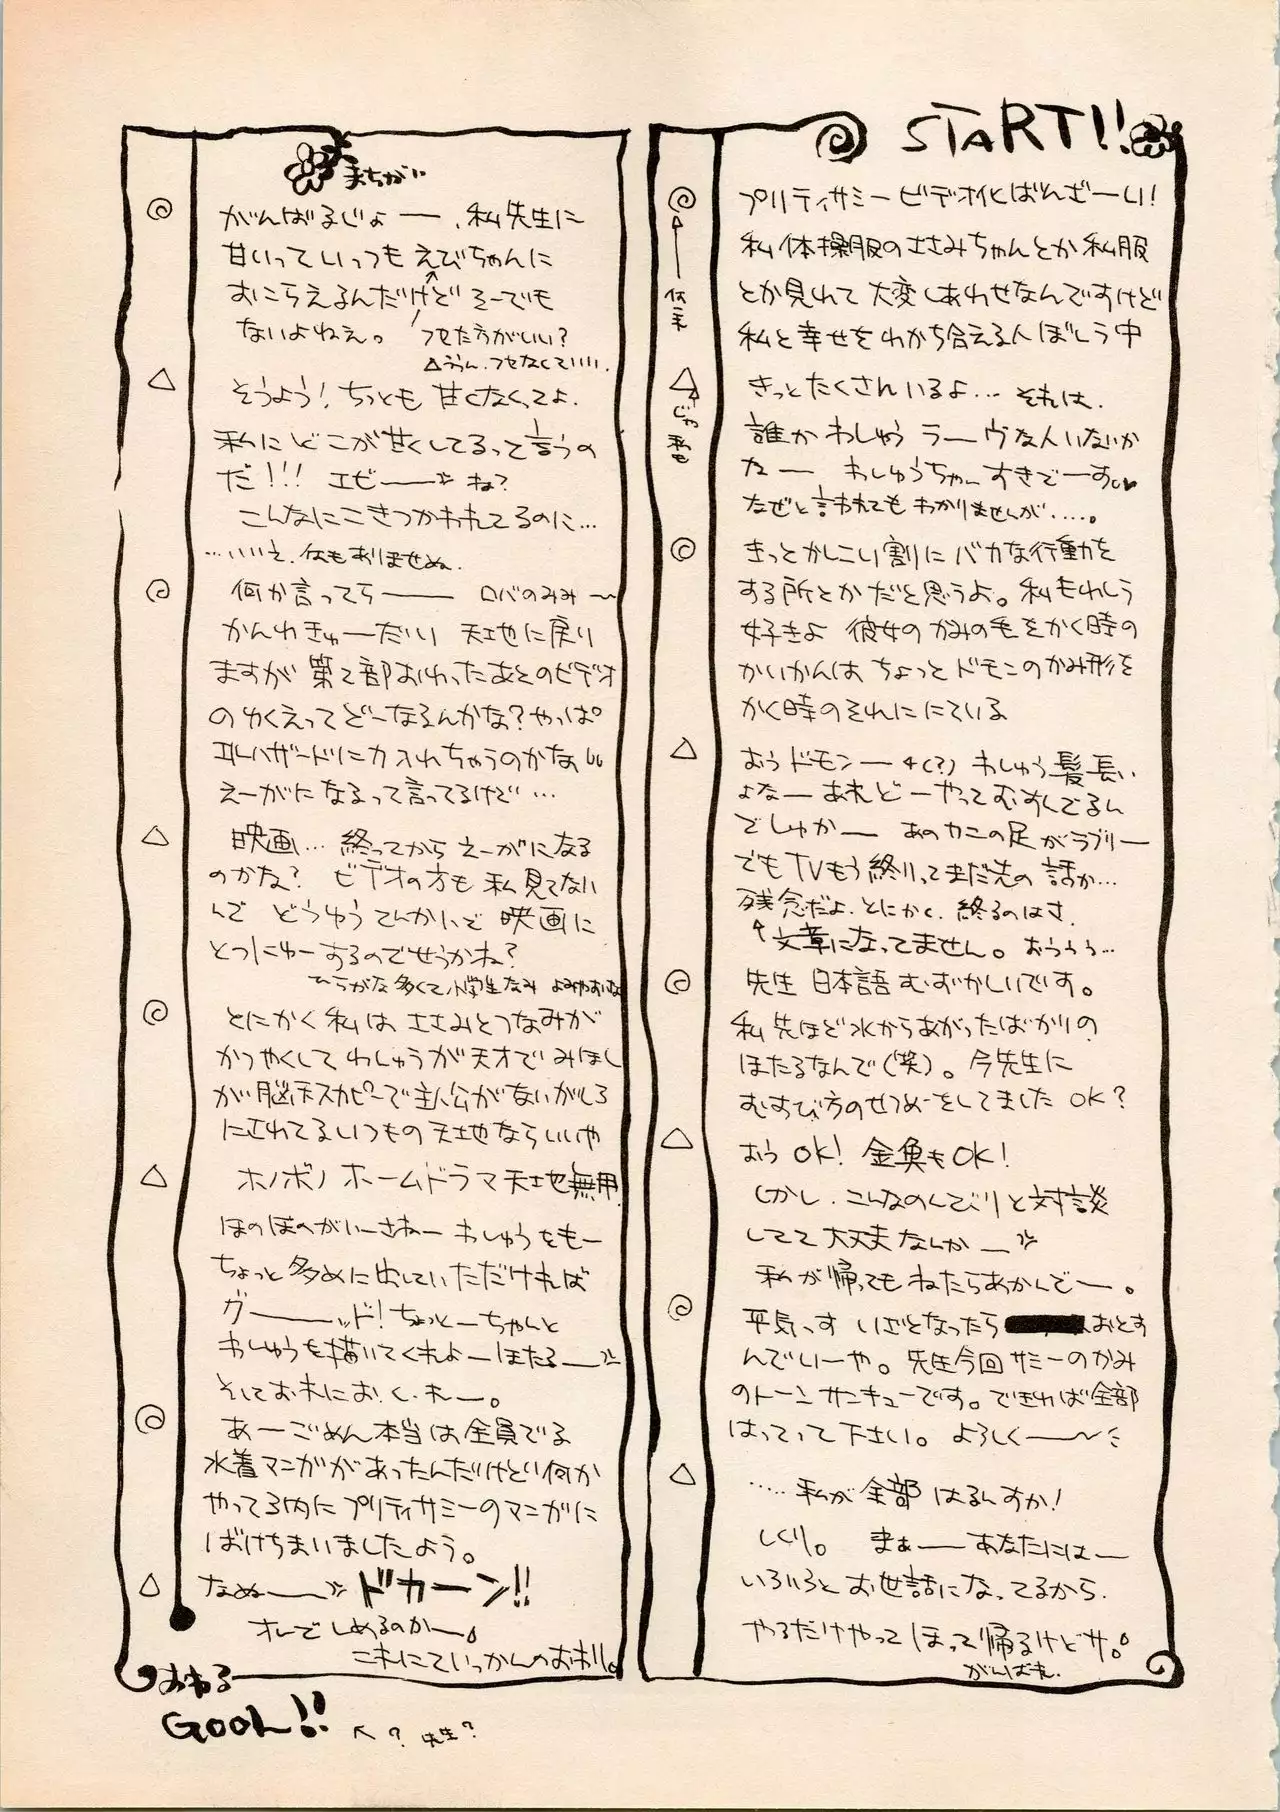 START!!
プリティサミービデオ化ばんざーい!
私体操服のささみちゃんとか私服
とか見れて大変しあわせなんですけど
私と幸せをわかち合える人ぼしう中
きっとたくさんいるよ… それは、
誰かわしゅうラーヴな人いないか
なー わしゅうちゃーすきでーす。♥
なぜと言われてもわかりませんが……。
きっとかしこい割にバカな行動を
する所とかだと思うよ。私もわしう
好きよ 彼女のかみの毛をかく時の
かいかんはちょっとドモンのかみ形を
かく時のそれににている
おうドモンー (?) わしゅう髪長い
よなー あれどーやってむすんでるん
でしゅかー あのカニの足がラブリー
でもTVもう終りってまだ先の話か…
残念だよ、とにかく、終るのはさ、
↑文章になってません。おううう…
先生 日本語むずかしいです。
私先ほど水からあがったばかりの
ほたるなんで(笑)。今先生に
むすび方のせつめーをしてました OK?
おうOK! 金魚もOK!
しかし、こんなのんびりと対談
してて大丈夫なんかー
私が帰ってもねたらあかんでー。
平気っす いざとなったら おとす
んでいーや。先生今回サミーのかみ
のトーンサンキューです。できれば全部
はってって下さい。よろしくー〜
……私が全部はるんすか!
しくり。 まぁーーあなたにはー
いろいろとお世話になってるから、
やるだけやってほって帰るけどサ。
がんばれ、
まちがい
がんばるじょー、私先生に
甘いっていっつもえびちゃんに
おこらえるんだけどそーでも
ないよねえ。 フセた方がいい?
△ううん、フセなくていいい、
そうよう! ちっとも甘くなくってよ、
私にどこが甘くしてるって言うの
だ!!! エビーー ね?
こんなにこきつかわれてるのに…
…いいえ、何もありませぬ、
何か言ってらーー ロバのみみ〜
かんわきゅーだい 天地に戻り
ますが第2部おわったあとのビデオ
のゆくえってどーなるんかな? やっぱ
エルハザードに力入れちゃうのかなぁ
えーがになるって言ってるけど…
映画… 終ってからえーがになる
のかな? ビデオの方も私見てない
んで どうゆうてんかいで映画に
とつにゅーするのでせうかね?
ひらがな多くて小学生なみ よみやすいな
とにかく私はささみとつなみが
かつやくしてわしゅうが天才でみほし
が脳天スカピーで主人公がないがしろ
にされてるいつもの天地ならいいや
ホノボノホームドラマ天地無用
ほのぼのがいーさねー わしゅうをもー
ちょっと多めに出していただければ
グーーッド! ちょっとーちゃんと
わしゅうを描いてくれよーほたるー
そしてお木におくれー。
あーごめん本当は全員でる
水着マンガがあったんだけどい何か
やってる内にプリティサミーのマンガに
ばけちまいましたよう。
なぬーー ドカーン!!
オレでしめるのかー
これにていっかんのおわり。
おわる
↖? 先生?